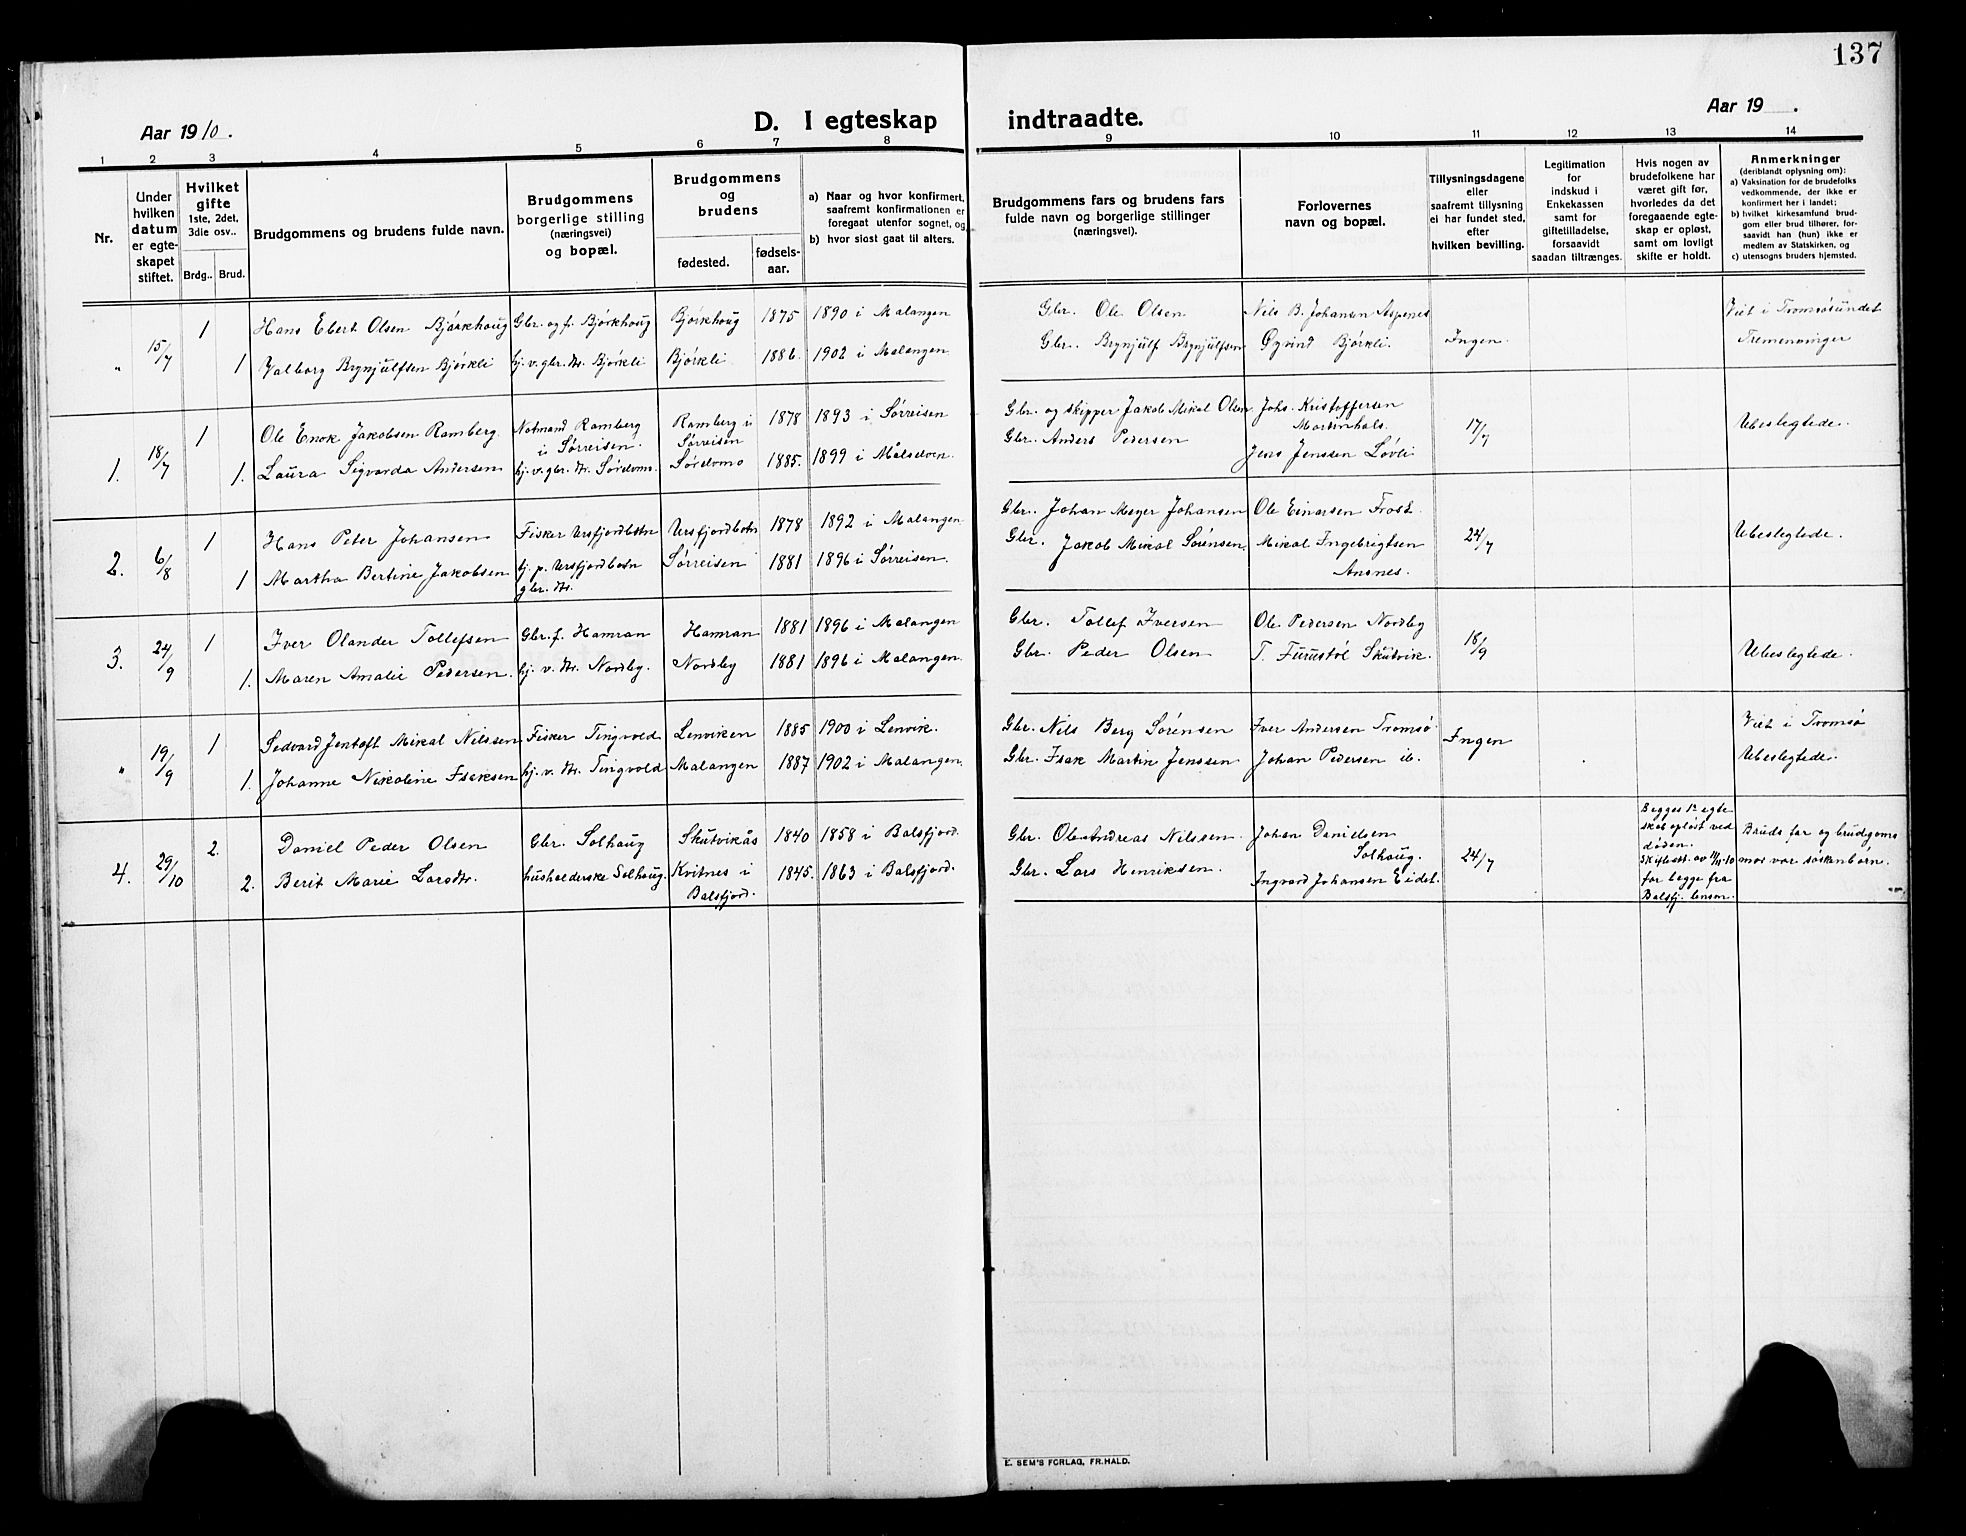 137
Aar 1910.
D. I egteskap indtraadte.
Aar 19 .
1 2 3 4 5 6 7 8 9 10 11 12 13 14
Nr.
Under hvilken datum er egteskapet stiftet.
Hvilket gifte
1ste, 2det, 3die osv..
Brdg.. Brud.
Brudgommens og brudens fulde navn.
Brudgommens borgerlige stilling
(næringsvei)
og bopæl.
Brudgommens og brudens
fødested.
fødselsaar.
a) Naar og hvor konfirmert, saafremt konfirmationen er foregaat utenfor sognet, og
b) hvor sidst gaat til alters.
Brudgommens fars og brudens fars fulde navn og borgerlige stillinger
(næringsvei).
Forlovernes navn og bopæl.
Tillysningsdagene eller saafremt tillysning ei har fundet sted, efter hvilken bevilling.
Legitimation for indskud i Enkekassen samt for giftetilladelse, forsaavidt saadan tiltrænges.
Hvis nogen av brudefolkene har været gift før, hvorledes da det foregaaende egteskap er opløst, samt om lovligt skifte er holdt.
Anmerkninger
(deriblandt oplysning om):
a) Vaksination for de brudefolks vedkommende, der ikke er konfirmert her i landet;
b) hvilket kirkesamfund brudgom eller brud tilhører, forsaavidt han (hun) ikke er medlem av Statskirken, og
c) utensogns bruders hjemsted.
„ 15/7 1 Hans Ebert Olsen Bjørkhoug Gbr. og f. Bjørkhoug Bjørkhoug 1875 1890 i Malangen Gbr. Ole Olsen Nils B. Johansen Aspenes Viet i Tromsøsundet
1 Valborg Brynjulfsen Bjørkli hj. v. gbr. dtr. Bjørkli Bjørkli 1886. 1902 i Malangen Gbr. Brynjulf Brynjulfsen Øyvind Bjørkli Ingen Tremenninger
1. 18/7 1 Ole Enok Jakobsen Ramberg. Notmand Ramberg i Sørreisen. Ramberg i Sørreisen 1878 1893 i Sørreisen Gbr. og skipper Jakob Mikal Olsen Johs. Kristoffersen Martinhals. 17/7 Ubeslegtede.
1. Laura Sigvarda Andersen hj. v. gbr. dtr. Sørdomo. Sørdomo 1885. 1899 i Målselven. Gbr. Anders Pedersen Jens Jenssen Løvli
2. 6/8 1 Hans Peter Johansen Fisker Ursfjordbotn Ursfjordbotn 1878 1892 i Malangen Gbr. Johan Meyer Johansen Ole Einarsen Frost. 24/7 Ubeslegtede.
1 Martha Bertine Jakobsen hj. p. Ursfjordbotn gbr. dtr. Sørreisen 1881 1896 i Sørreisen. Gbr. Jakob Mikal Sørensen. Mikal Ingebrigtsen Ansnes.
3. 24/9 1 Iver Olander Tollefsen Gbr. f. Hamran Hamran 1881 1896 i Malangen Gbr. Tollef Iversen Ole Pedersen Nordby 18/9
1. Maren Amalie Pedersen. hj. v. dtr. Nordby. Nordby 1881 1896 i Malangen. Gbr. Peder Olsen T. Furustøl Skutvik. Ubeslegtede.
„ 19/9 1 Sedvard Jentoft Mikal Nilssen Fisker Tingvold Lenviken 1885 1900 i Lenvik. Gbr. Nils Berg Sørensen Iver Andersen Tromsø Ingen Viet i Tromsø
1. Johanne Nikoline Isaksen hj. v. dtr. Tingvold Malangen 1887 1902 i Malangen. Gbr. Isak Martin Jenssen Johan Pedersen ib. Ubeslegtede.
4. 29/10 2. Daniel Peder Olsen Gbr. Solhaug Skutvikås 1840 1858 i Balsfjord. Gbr. Ole Andreas Nilssen. Johan Danielsen Solhaug. 24/7
2. Berit Marie Larsdtr. husholderske Solhaug. Kvitnes i Balsfjord. 1845. 1863 i Balsfjord. Gbr. Lars Henriksen. Ingvard Johansen Eidet.
Begges 1ste egteskab opløst ved døden. Skifteatt. av for begge fra Balsfj. lensm.
Bruds far og brudgoms mor var søskenbørn.
E. SEM'S FORLAG, FR.HALD.